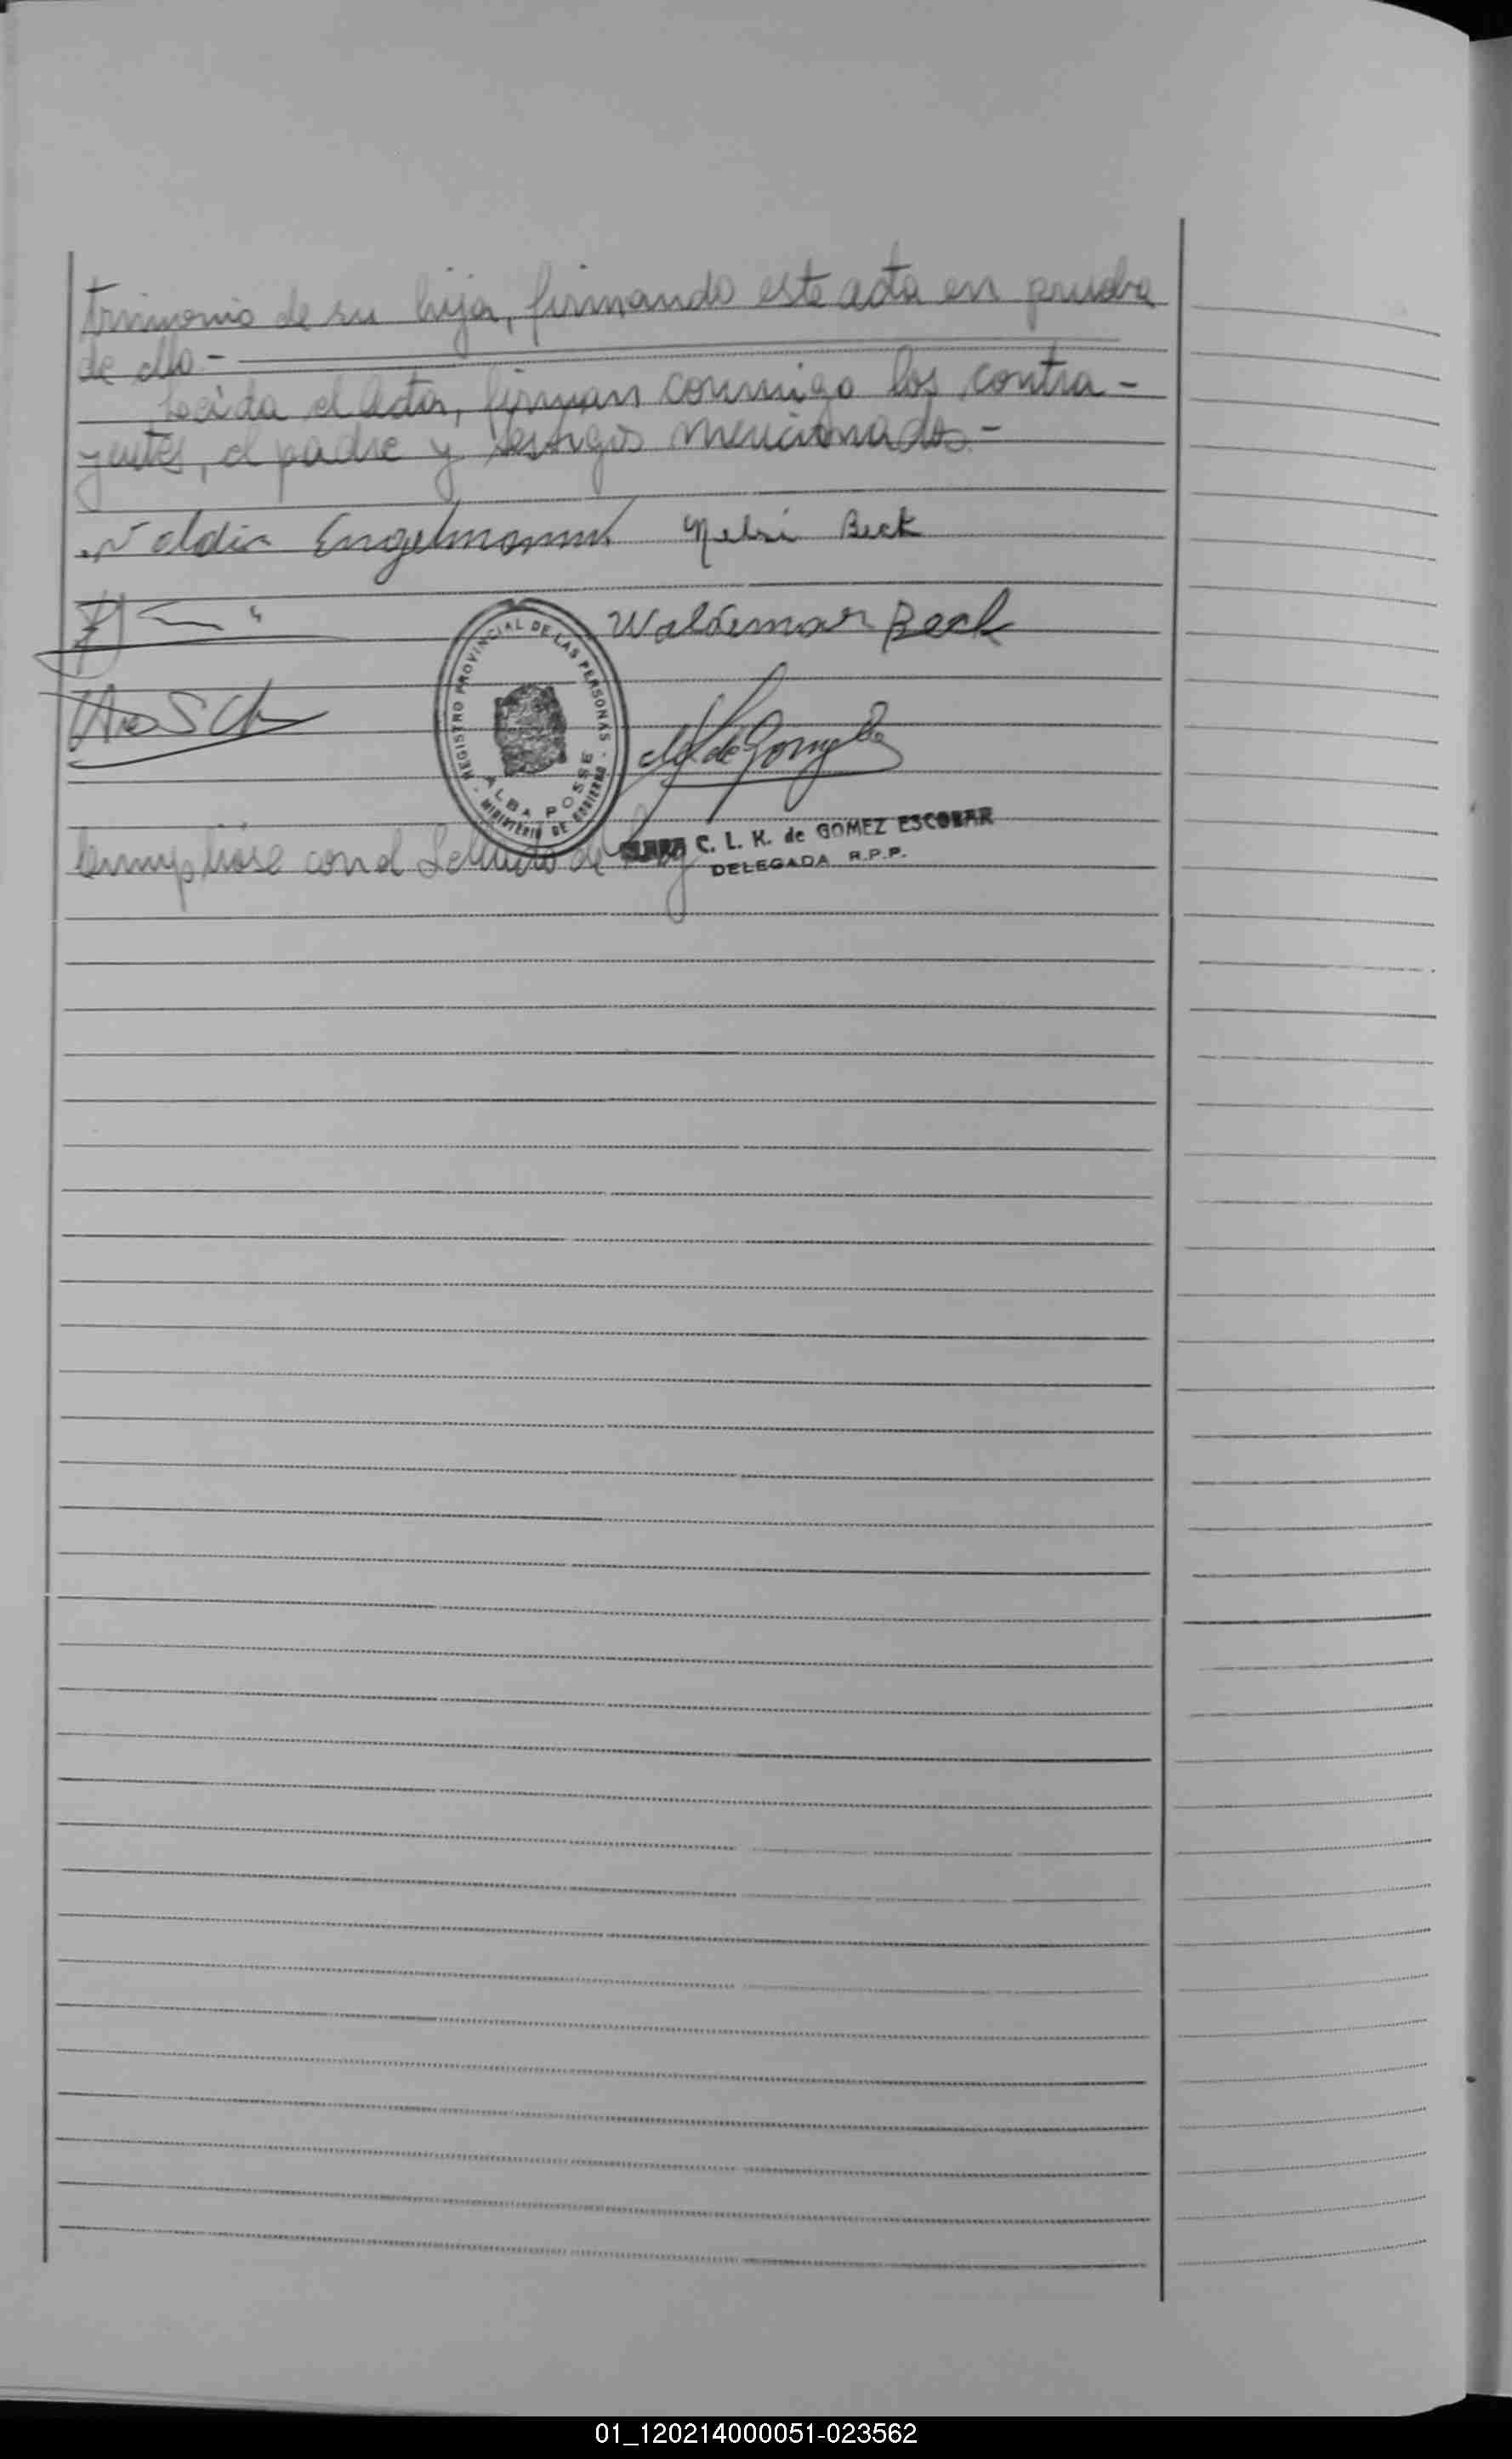 trimonio de su hija, firmando este acta en prueba
de ello.-
Leída el Acta, firman conmigo los contra-
yentes, el padre y testigos mencionados.-
Engelmann Nelsi Beck
Waldemar Beck
REGISTRO PROVINCIAL DE LAS PERSONAS
ALBA POSSE
MINISTERIO DE GOBIERNO
C. L. K. de GOMEZ ESCOBAR
DELEGADA R.P.P.
Cumplióse con el Sellado de Ley